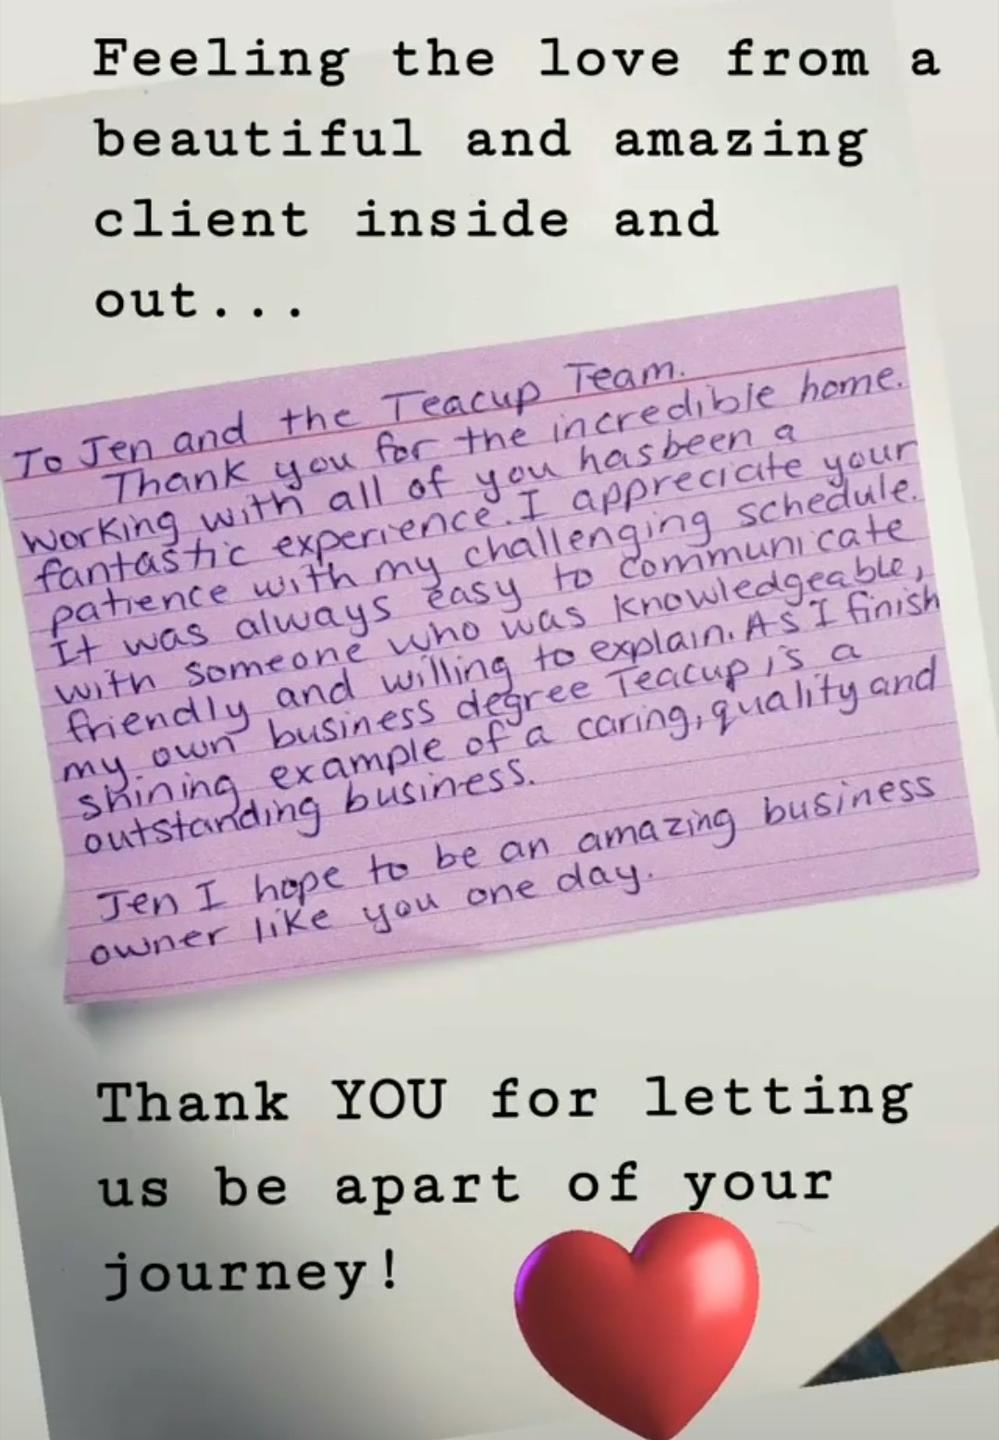 Feeling the love from a
beautiful and amazing
client inside and
out...
To Jen and the Teacup Team.
Thank you for the incredible home.
Working with all of you has been a
fantastic experience. I appreciate your
patience with my challenging schedule.
It was always easy to communicate
with someone who was knowledgeable,
friendly and willing to explain. As I finish
my own business degree Teacup is a
shining example of a caring, quality and
outstanding business.
Jen I hope to be an amazing business
owner like you one day.
Thank YOU for letting
us be apart of your
journey!